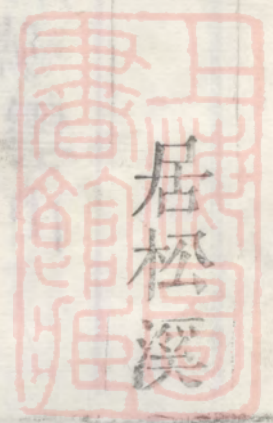 居松溪
上海圖
書館藏